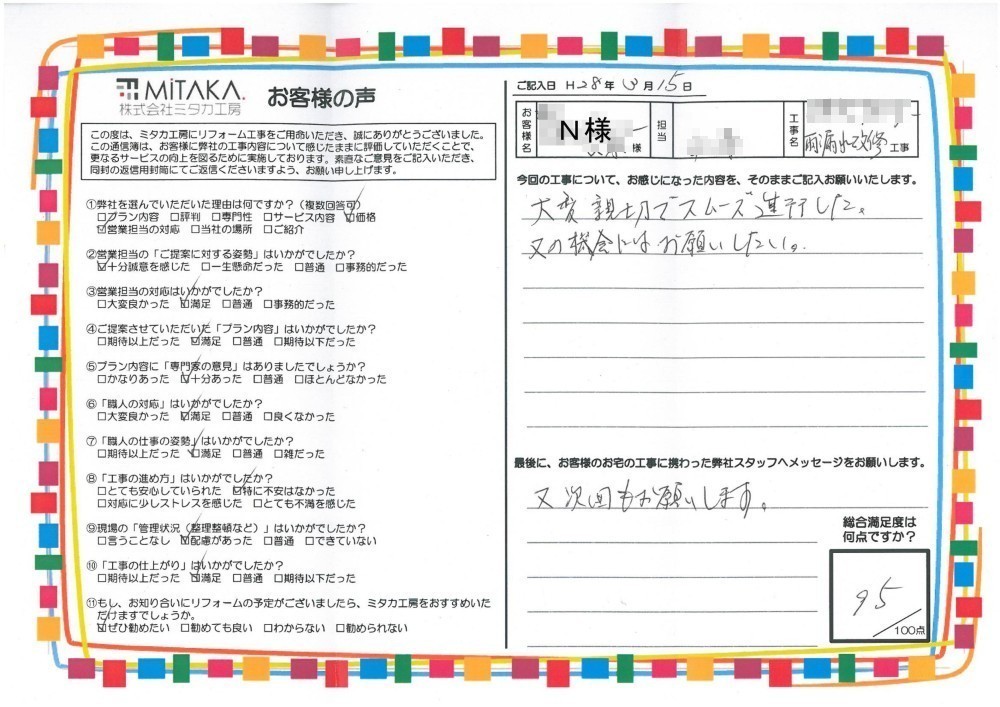 MiTAKA.
株式会社ミタカ工房
お客様の声
この度は、ミタカ工房にリフォーム工事をご用命いただき、誠にありがとうございました。
この通信簿は、お客様に弊社の工事内容について感じたままに評価していただくことで、
更なるサービスの向上を図るために実施しております。素直なご意見をご記入いただき、
同封の返信用封筒にてご返信くださいますよう、お願い申し上げます。
①弊社を選んでいただいた理由は何ですか？（複数回答可）
□プラン内容 □評判 □専門性 □サービス内容 ☑価格
☑営業担当の対応 □当社の場所 □ご紹介
②営業担当の「ご提案に対する姿勢」はいかがでしたか？
☑十分誠意を感じた □一生懸命だった □普通 □事務的だった
③営業担当の対応はいかがでしたか？
□大変良かった ☑満足 □普通 □事務的だった
④ご提案させていただいた「プラン内容」はいかがでしたか？
□期待以上だった ☑満足 □普通 □期待以下だった
⑤プラン内容に「専門家の意見」はありましたでしょうか？
□かなりあった ☑十分あった □普通 □ほとんどなかった
⑥「職人の対応」はいかがでしたか？
□大変良かった ☑満足 □普通 □良くなかった
⑦「職人の仕事の姿勢」はいかがでしたか？
□期待以上だった ☑満足 □普通 □雑だった
⑧「工事の進め方」はいかがでしたか？
□とても安心していられた ☑特に不安はなかった
□対応に少しストレスを感じた □とても不満を感じた
⑨現場の「管理状況（整理整頓など）」はいかがでしたか？
□言うことなし ☑配慮があった □普通 □できていない
⑩「工事の仕上がり」はいかがでしたか？
□期待以上だった ☑満足 □普通 □期待以下だった
⑪もし、お知り合いにリフォームの予定がございましたら、ミタカ工房をおすすめいた
だけますでしょうか。
☑ぜひ勧めたい □勧めても良い □わからない □勧められない
ご記入日 H28年 3月 15日
お客様名 N様 様 担当 工事名 雨漏れ改修 工事
今回の工事について、お感じになった内容を、そのままご記入お願いいたします。
大変親切でスムーズ進行した。
又の機会にはお願いしたい。
最後に、お客様のお宅の工事に携わった弊社スタッフへメッセージをお願いします。
又次回もお願いします。
総合満足度は
何点ですか？
95
/100点